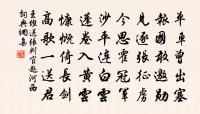 單車曾出塞
報國敢邀勳
見逐張征虜
今思霍冠軍
沙平連白雪
蓬卷入黃雲
慷慨倚長劍
高歌一送君
王維送張判官赴河西
詞典網集